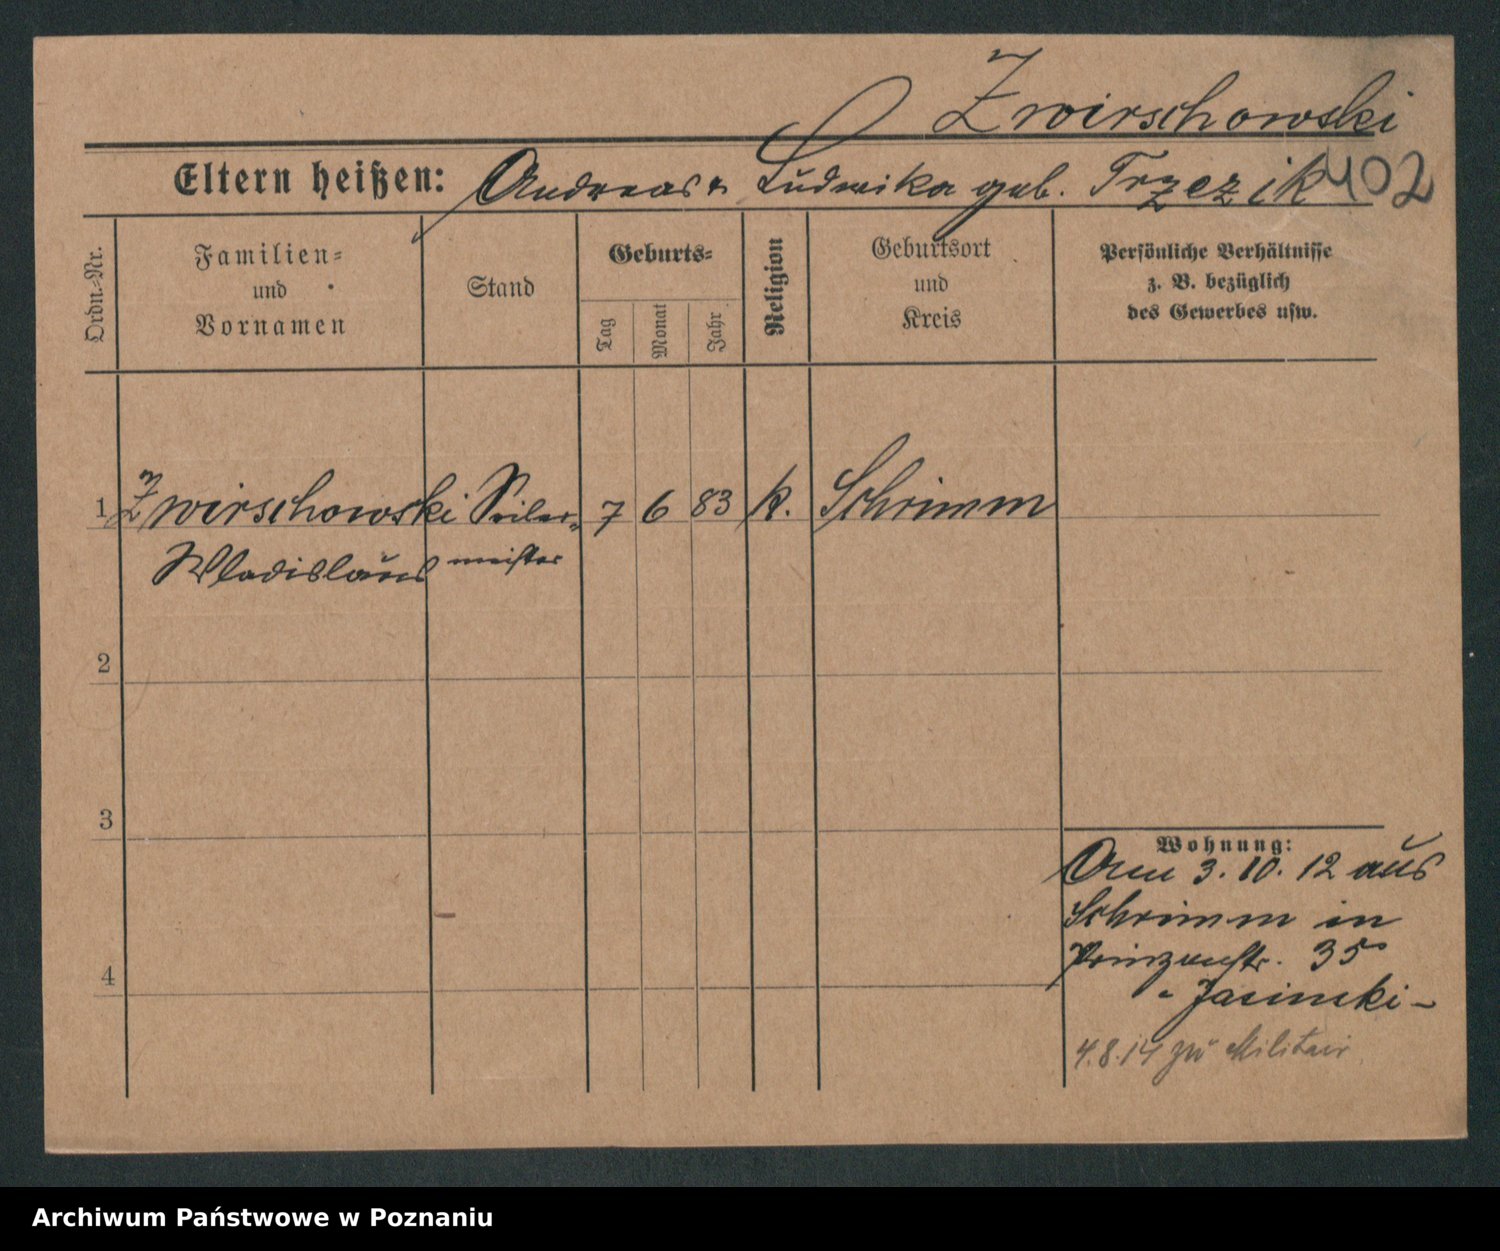 Zwirschowski
Eltern heißen: Andreas u Ludwika geb. Trzezik 402
Ordn.-Nr.
Familien-
und
Vornamen
Stand
Geburts-
Tag
Monat
Jahr
Religion
Geburtsort
und
Kreis
Persönliche Verhältnisse
z. B. bezüglich
des Gewerbes usw.
1 Zwirschowski Seiler- 7 6 83 k. Schrimm
Wladislaus meister
2
3
4
Wohnung:
3. 10. 12 aus
Schrimm in
Prinzenstr. 35
- Jasinski -
4.8.14 zu Militair
Archiwum Państwowe w Poznaniu